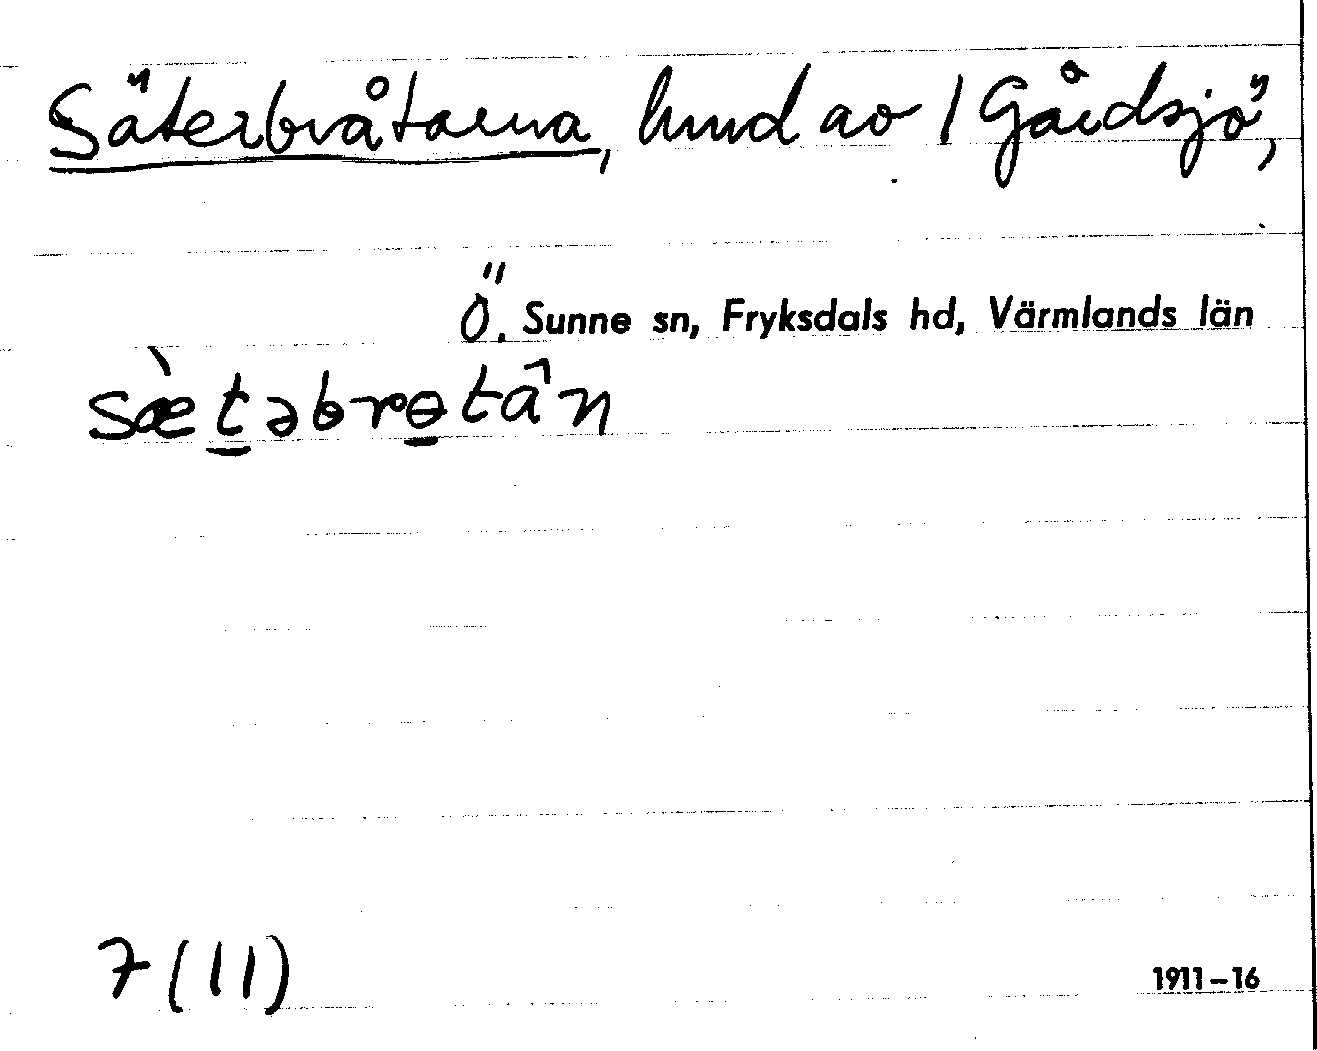 Säterbråtarna, hmd av / Gårdsjö,
Ö. Sunne sn, Fryksdals hd, Värmlands län
sæ̀t̲əbrɵ̲tân
7 (11)
1911–16